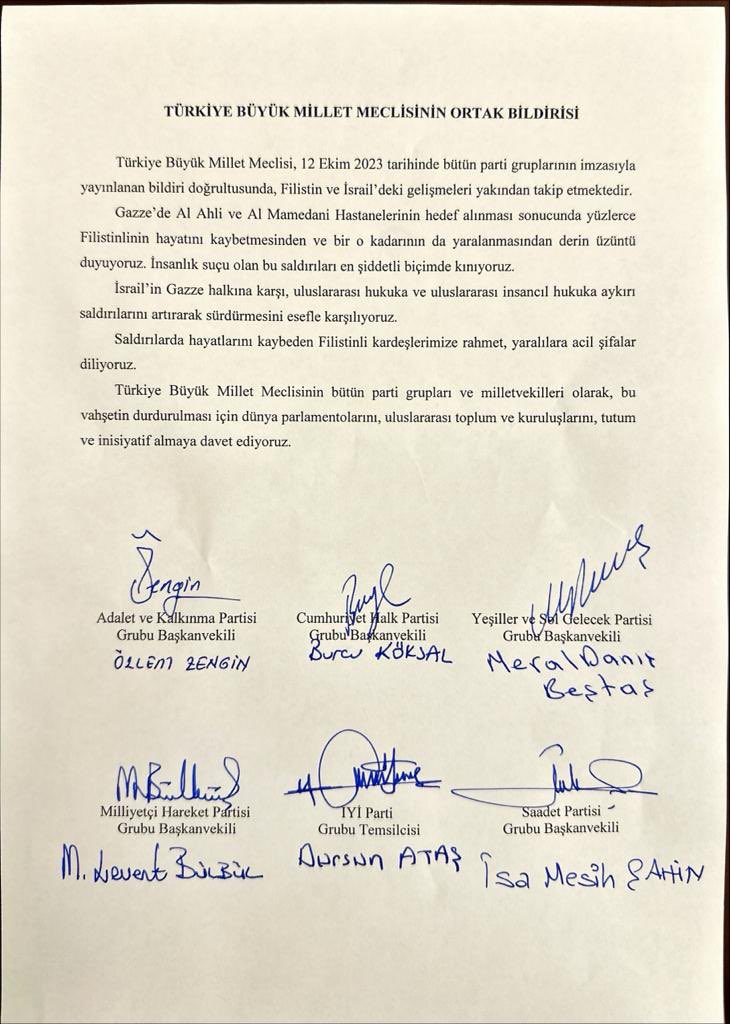 TÜRKİYE BÜYÜK MİLLET MECLİSİNİN ORTAK BİLDİRİSİ
Türkiye Büyük Millet Meclisi, 12 Ekim 2023 tarihinde bütün parti gruplarının imzasıyla
yayınlanan bildiri doğrultusunda, Filistin ve İsrail'deki gelişmeleri yakından takip etmektedir.
Gazze'de Al Ahli ve Al Mamedani Hastanelerinin hedef alınması sonucunda yüzlerce
Filistinlinin hayatını kaybetmesinden ve bir o kadarının da yaralanmasından derin üzüntü
duyuyoruz. İnsanlık suçu olan bu saldırıları en şiddetli biçimde kınıyoruz.
İsrail'in Gazze halkına karşı, uluslararası hukuka ve uluslararası insancıl hukuka aykırı
saldırılarını artırarak sürdürmesini esefle karşılıyoruz.
Saldırılarda hayatlarını kaybeden Filistinli kardeşlerimize rahmet, yaralılara acil şifalar
diliyoruz.
Türkiye Büyük Millet Meclisinin bütün parti grupları ve milletvekilleri olarak, bu
vahşetin durdurulması için dünya parlamentolarını, uluslararası toplum ve kuruluşlarını, tutum
ve inisiyatif almaya davet ediyoruz.
Adalet ve Kalkınma Partisi Cumhuriyet Halk Partisi Yeşiller ve Sol Gelecek Partisi
Grubu Başkanvekili Grubu Başkanvekili Grubu Başkanvekili
ÖZLEM ZENGİN Burcu KÖKSAL Meral Danış
Beştaş
M. Bülbül
Milliyetçi Hareket Partisi İYİ Parti Saadet Partisi
Grubu Başkanvekili Grubu Temsilcisi Grubu Başkanvekili
M. Levent BÜLBÜL Dursun ATAŞ İsa Mesih ŞAHİN